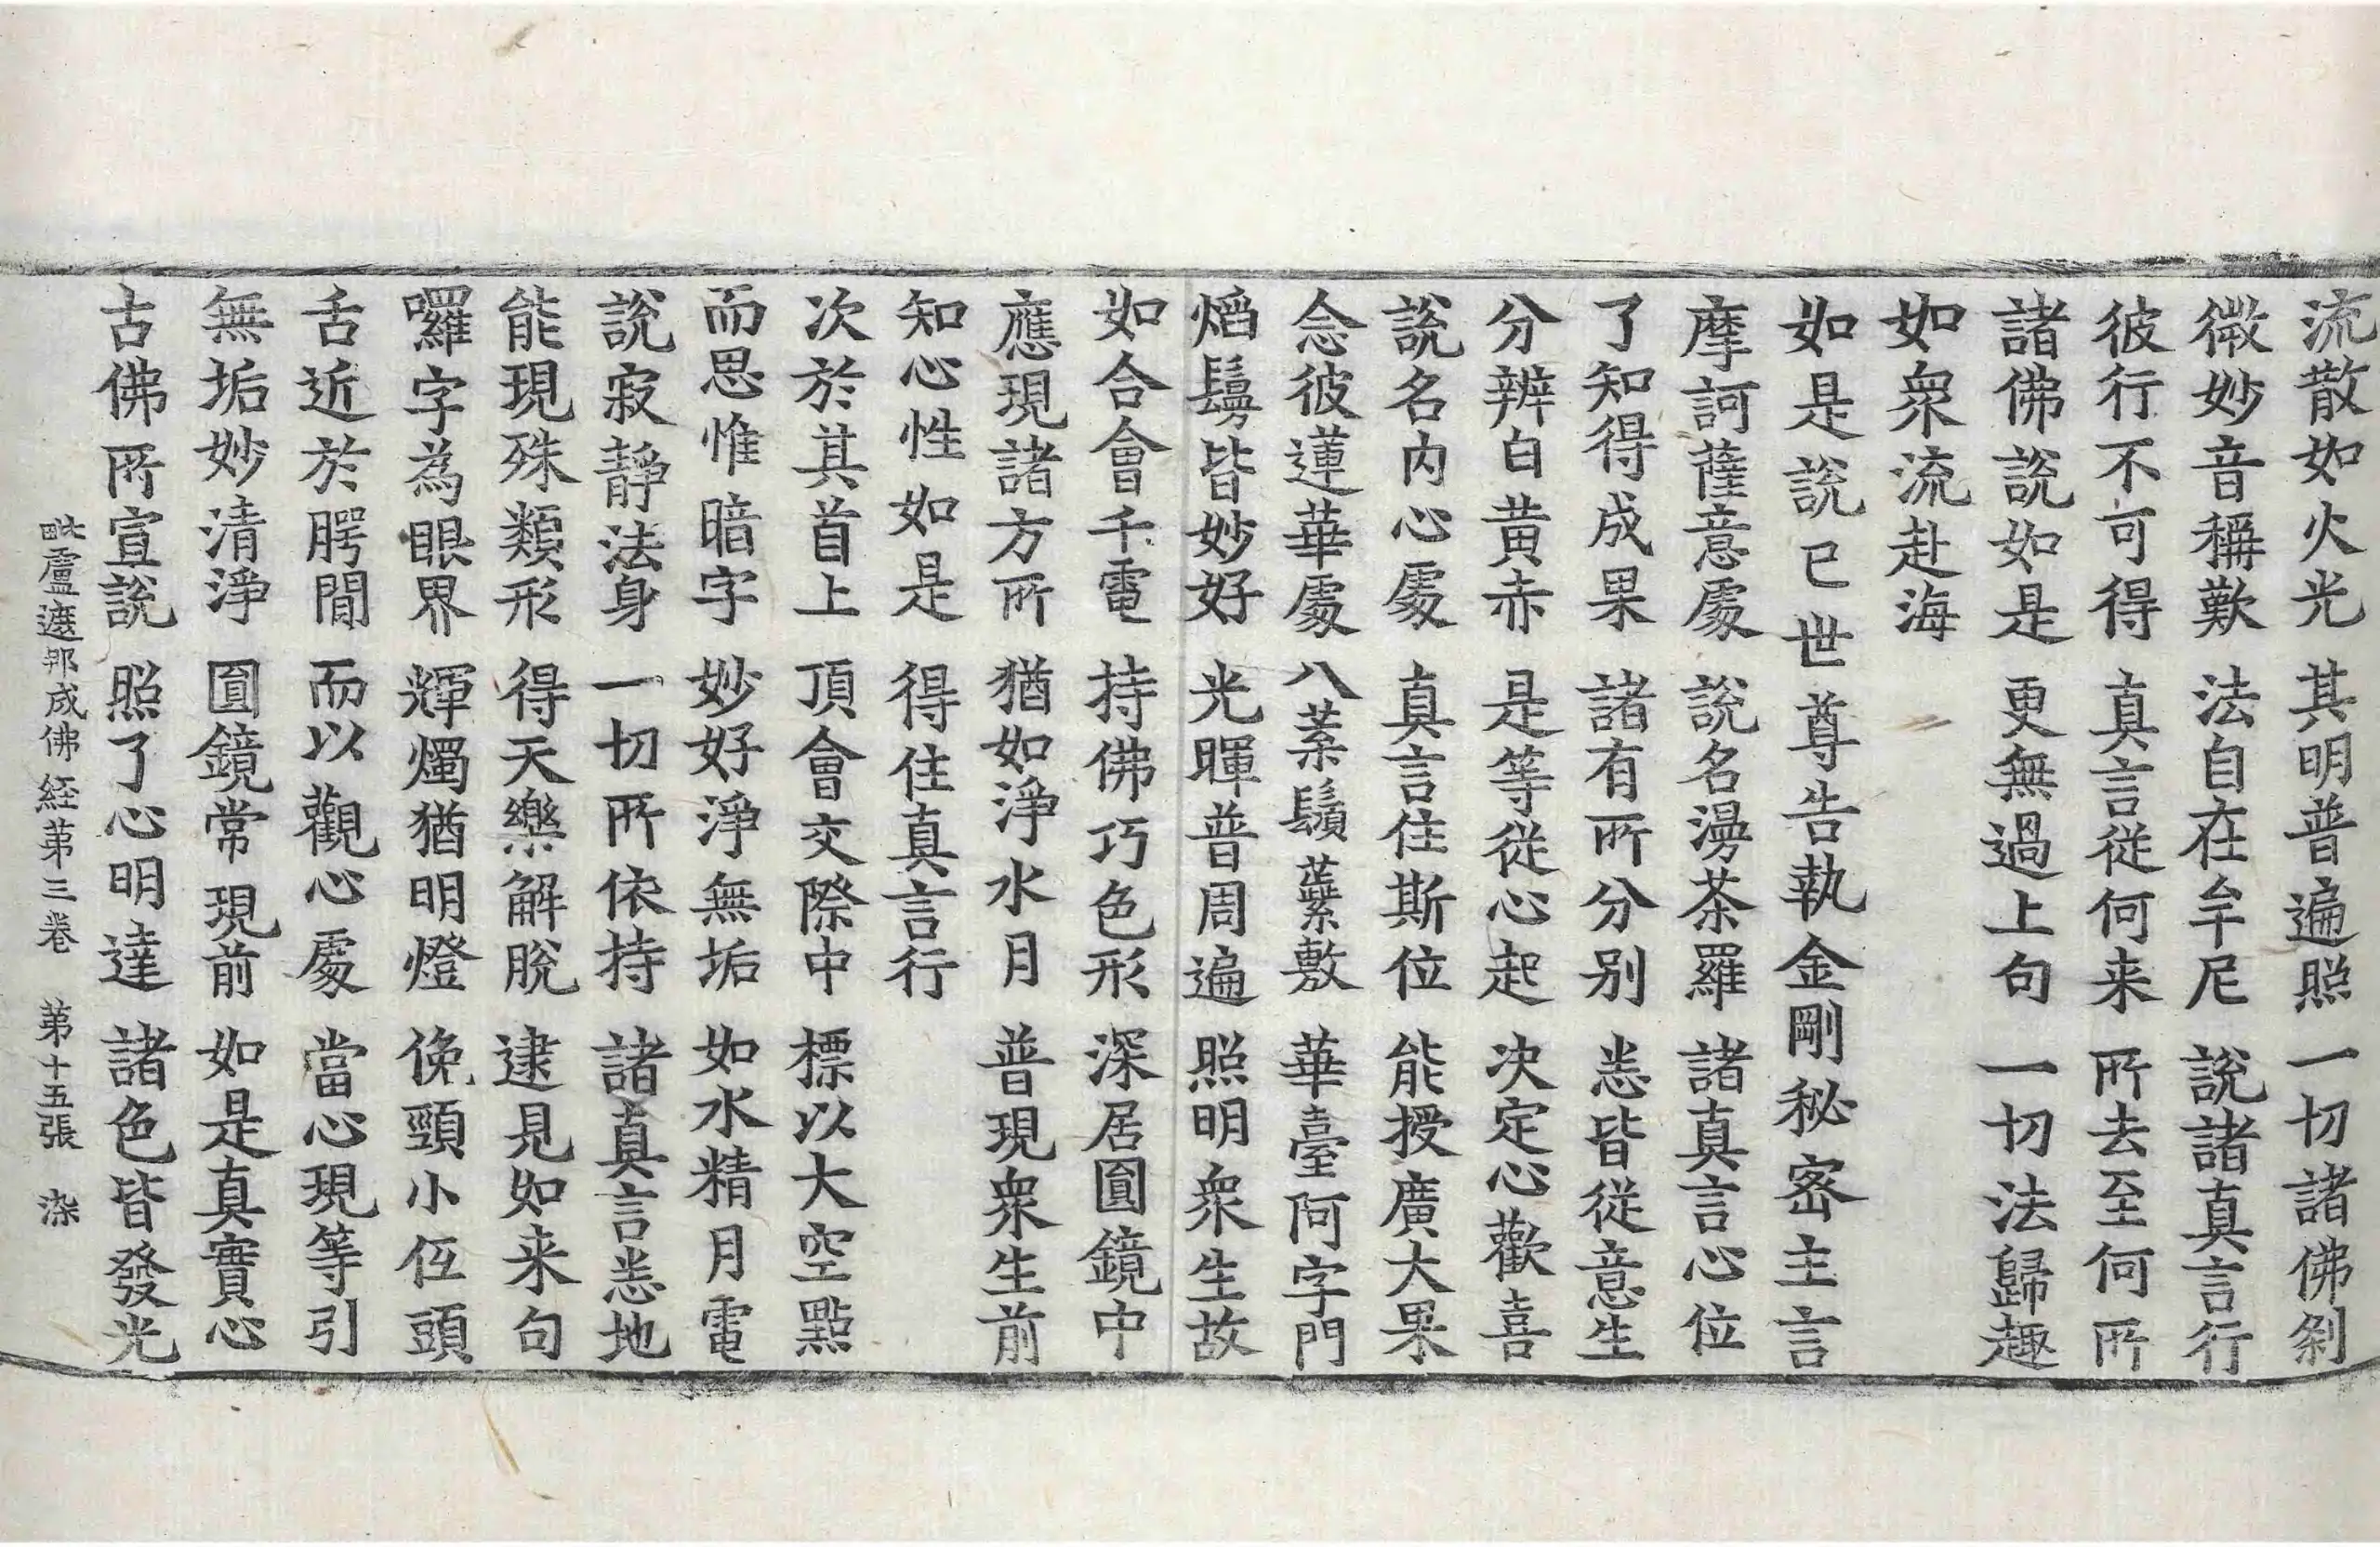 流散如火光　其明普遍照　一切諸佛剎
微妙音稱歎　法自在牟尼　說諸真言行
彼行不可得　真言從何来　所去至何所
諸佛說如是　更無過上句　一切法歸趣
如衆流赴海
如是說已世尊告執金剛秘密主言
摩訶薩意處　說名漫茶羅　諸真言心位
了知得成果　諸有所分別　悉皆從意生
分辨白黃赤　是等從心起　決定心歡喜
說名内心處　真言住斯位　能授廣大果
念彼蓮華處　八葉鬚蘂敷　華臺阿字門
焰鬘皆妙好　光暉普周遍　照明衆生故
如合會千電　持佛巧色形　深居圓鏡中
應現諸方所　猶如淨水月　普現衆生前
知心性如是　得住真言行
次於其首上　頂會交際中　標以大空點
而思惟暗字　妙好淨無垢　如水精月電
說寂靜法身　一切所依持　諸真言悉地
能現殊類形　得天樂解脫　逮見如来句
囉字為眼界　輝燭猶明燈　俛頸小低頭
舌近於腭間　而以觀心處　當心現等引
無垢妙清淨　圓鏡常現前　如是真實心
古佛所宣說　照了心明達　諸色皆發光
大毗盧遮那成佛経第三卷　第十五張　染